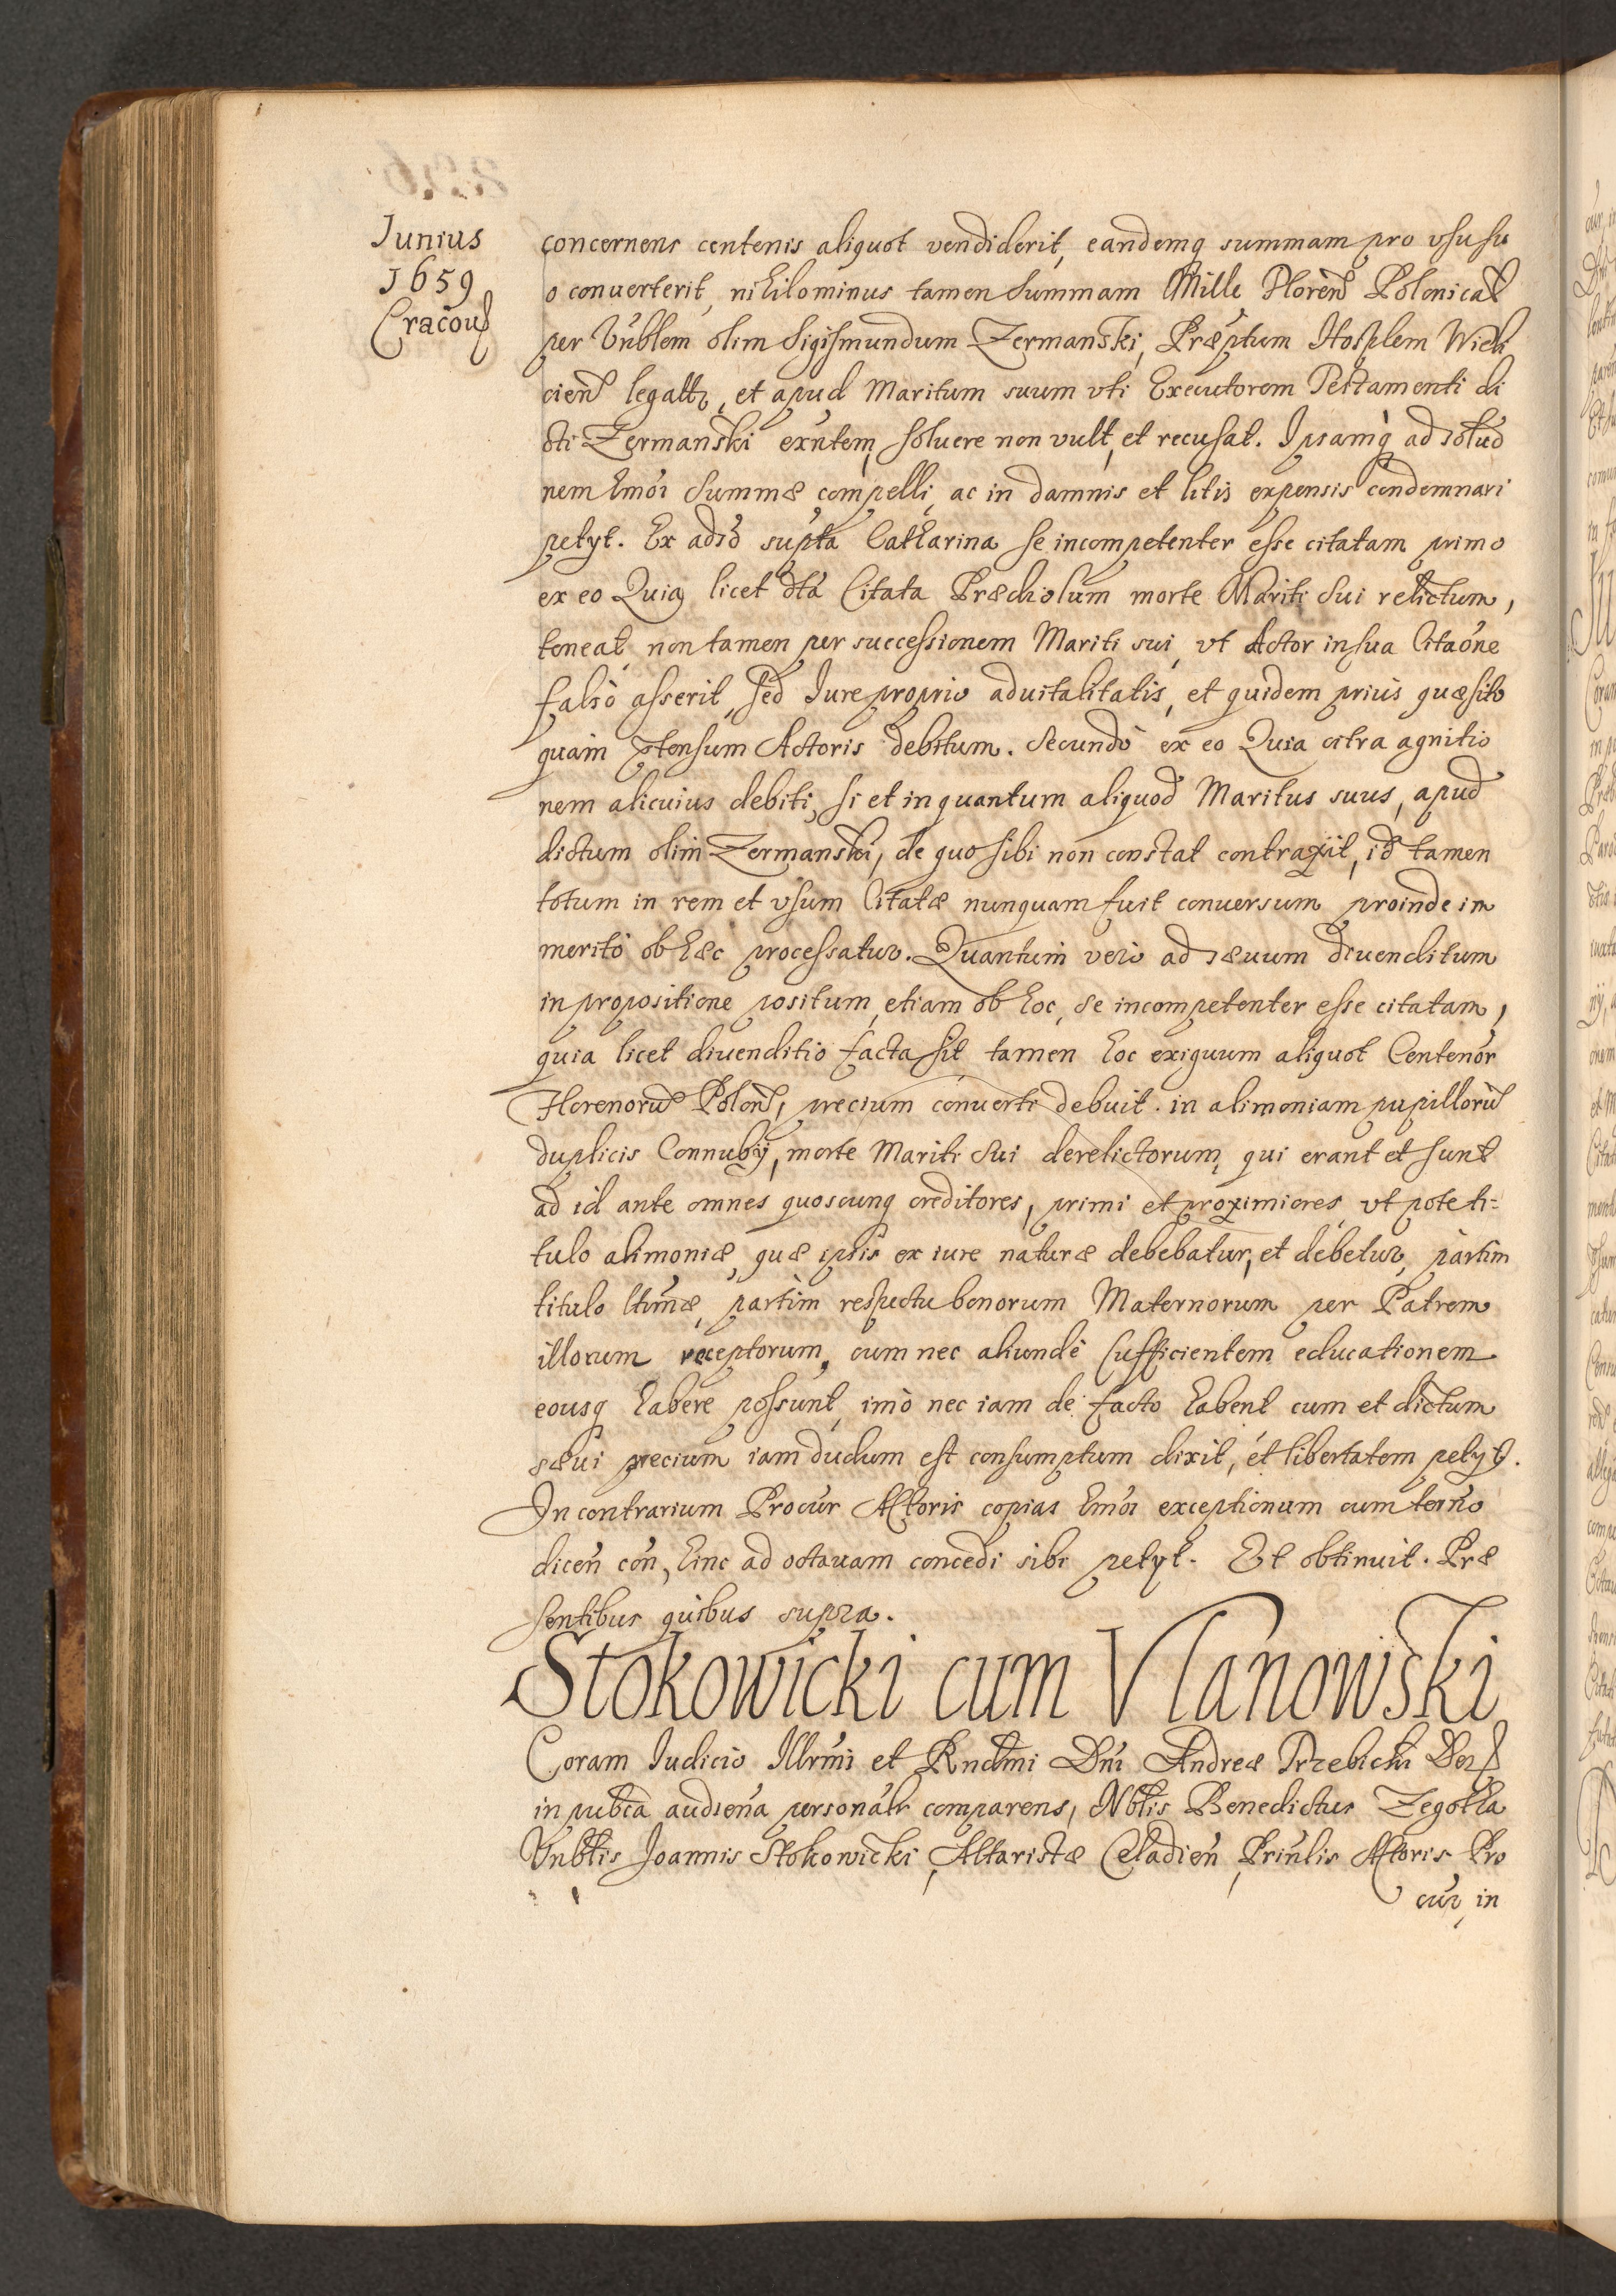 Junius
1659
Cracouiȩ
concernens centenis aliquot vendiderit, eandemq summam pro vsu su
o conuerterit, nihilominus tamen Summam Mille Floren Polonical
per Vnblem olim Sigismundum Zermanski, Præptum Hosplem Wieli
cien legatt, et apud Maritum suum vti Executorem Testamenti di
cti Zermanski exntem, soluere non vult, et recusat. Ipsamq ad solud
nem hmoi Summæ compelli, ac in damnis et litis expensis condemnari
petyt. Ex adso supta Catharina se incompetenter esse citatam primo
ex eo Quia licet dta Citata Prædiolum morte Mariti sui relictum,
teneat, non tamen per successionem Mariti sui, vt Actor in sua Citaone
falsò asserit, sed Jure proprio aduitalitatis, et quidem prius quæsito
quam ptensum Actoris debitum. Secundò ex eo Quia citra agnitio
nem alicuius debiti, si et inquantum aliquod Maritus suus, apud
dictum olim Zermanski, de quo sibi non constat contraxit, id tamen
totum in rem et vsum Citatæ nunquam fuit conuersum proinde im
meritò ob hæc processatur. Quantum verò ad sæuum diuenditum
in propositione positum, etiam ob hoc, se incompetenter esse citatam,
quia licet diuenditio facta sit, tamen hoc exiguum aliquot Centenor
Florenorum Polon, precium conuerti debuit in alimoniam pupillorum
duplicis Connubij, morte Mariti sui derelictorum, qui erant et sunt
ad id ante omnes quoscunq creditores, primi et proximiores, vt pote ti=
tulo alimoniæ, quæ ipsis ex iure naturæ debebatur, et debetur, partim
titulo ltimæ, partim respectu bonorum Maternorum per Patrem
illorum receptorum, cum nec aliundè sufficientem educationem
eousq habere possunt, imò nec iam de facto habent cum et dictum
sæui precium iam dudum est consumptum dixit, et libertatem petyt.
In contrarium Procur Actoris copias hmoi exceptionum cum termo
dicen con, hinc ad octauam concedi sibi petyt. Et obtinuit. Præ
sentibus quibus supra.
Stokowicki cum Vlanowski
Coram Judicio Illrmi et Rndmi Dni Andreæ Trzebicki Dei
in publca audiena personalr comparens, Nblis Benedictus Zegotha
Vnblis Joannis Stokowicki, Altaristæ Czeladien, Prinlis Actoris Pro
cur, in